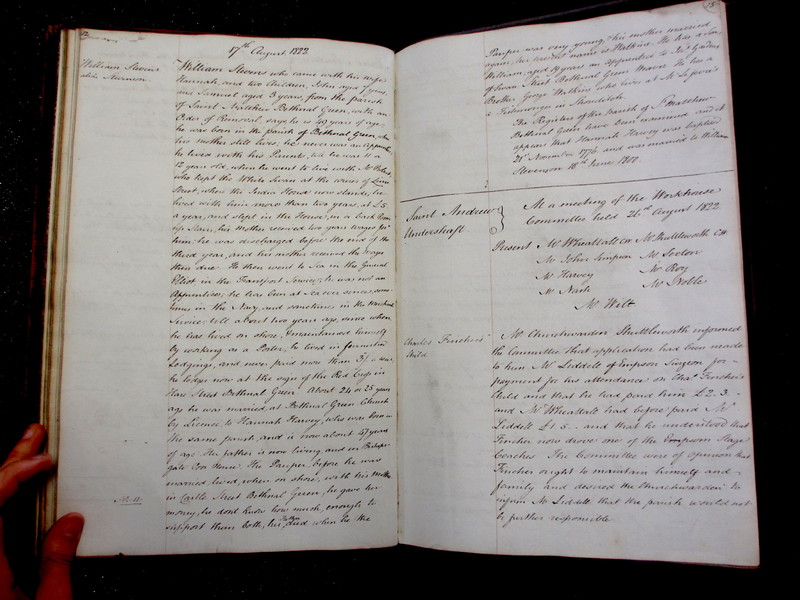 17th August 1822
William Stevens
alias
William Stevens who came with his wife
Hannah, and two Children, John aged 7 years,
and Samuel aged 3 years, from the parish
of Saint Matthew Bethnal Green, with an
Order of Removal, says he is 49 years of age,
he was born in the parish of Bethnal Green,
his mother still lives; he never was an Apprentice
he lived with his Parents, till he was 11 or
12 years old, when he went to live with Mr
who kept the White Swan at the corner of Lime
Street, where the India House now stands; he
lived with him more than two years, at £5
a year, and slept in the House, in a back Room
up Stairs, his Mother received two years wages for
him; he was discharged before the end of the
third year, and his mother received the wages
then due. He then went to Sea in the General
Elliot in the Transport Service; he was not an
Apprentice; he has been at Sea ever since, some
times in the Navy, and sometimes in the Merchant
Service till about two years ago, since when
he has lived on shore, & maintained himself
by working as a Porter; he lived in furnished
Lodgings, and never paid more than 3/. a week
he lodges now at the sign of the Red in
Hare Street Bethnal Green. About 24 or 25 years
ago he was married, at Bethnal Green Church
by Licence to Hannah Harvey, who was born in
the same parish, and is now about 47 years
of age. Her father is now living and in Bishops
gate Poor House. The Pauper before he was
married lived, when on shore, with his Mother
in Castle Street Bethnal Green, he gave her
money, he dont know how much, enough to
support them both; his Father died when he the
Pauper was very young; his mother married
again, her present name is Watkins. He has a Son,
William, aged 19 years an apprentice to Jas.
of Swan Street Bethnal Green Weaver. He has a
Brother George Watkins who lives at Mr
a in Shoreditch.
The Registers of the Parish of St. Matthew
Bethnal Green have been examined and it
appears that Hannah Harvey was baptized
21st November 1774 and was married to William
Stevenson 18th June
Saint Andrew
Undershaft
At a meeting of the Workhouse
Committee held 21st August 1822
Present Mr Wheallatt CW Mr Shuttleworth CW
Mr John Simpson Mr Sexton
Mr Harvey Mr Roy
Mr Nash Mr Noble
Mr Wilt
Charles Fincher's
Child
Mr Churchwarden Shuttleworth informed
the Committee that application had been made
to him Mr Liddell of Surgeon for
payment for his attendance on Chas. Fincher's
Child and that he had paid him £2. 3. -
and Mr Wheallatt had before paid Mr
Liddell £1. 5. - and that he understood that
Fincher now drove one of the Stage
Coaches The Committee were of opinion that
Fincher ought to maintain himself and
family and desired the Churchwarden to
inform Mr Liddell that the parish would not
be further responsible